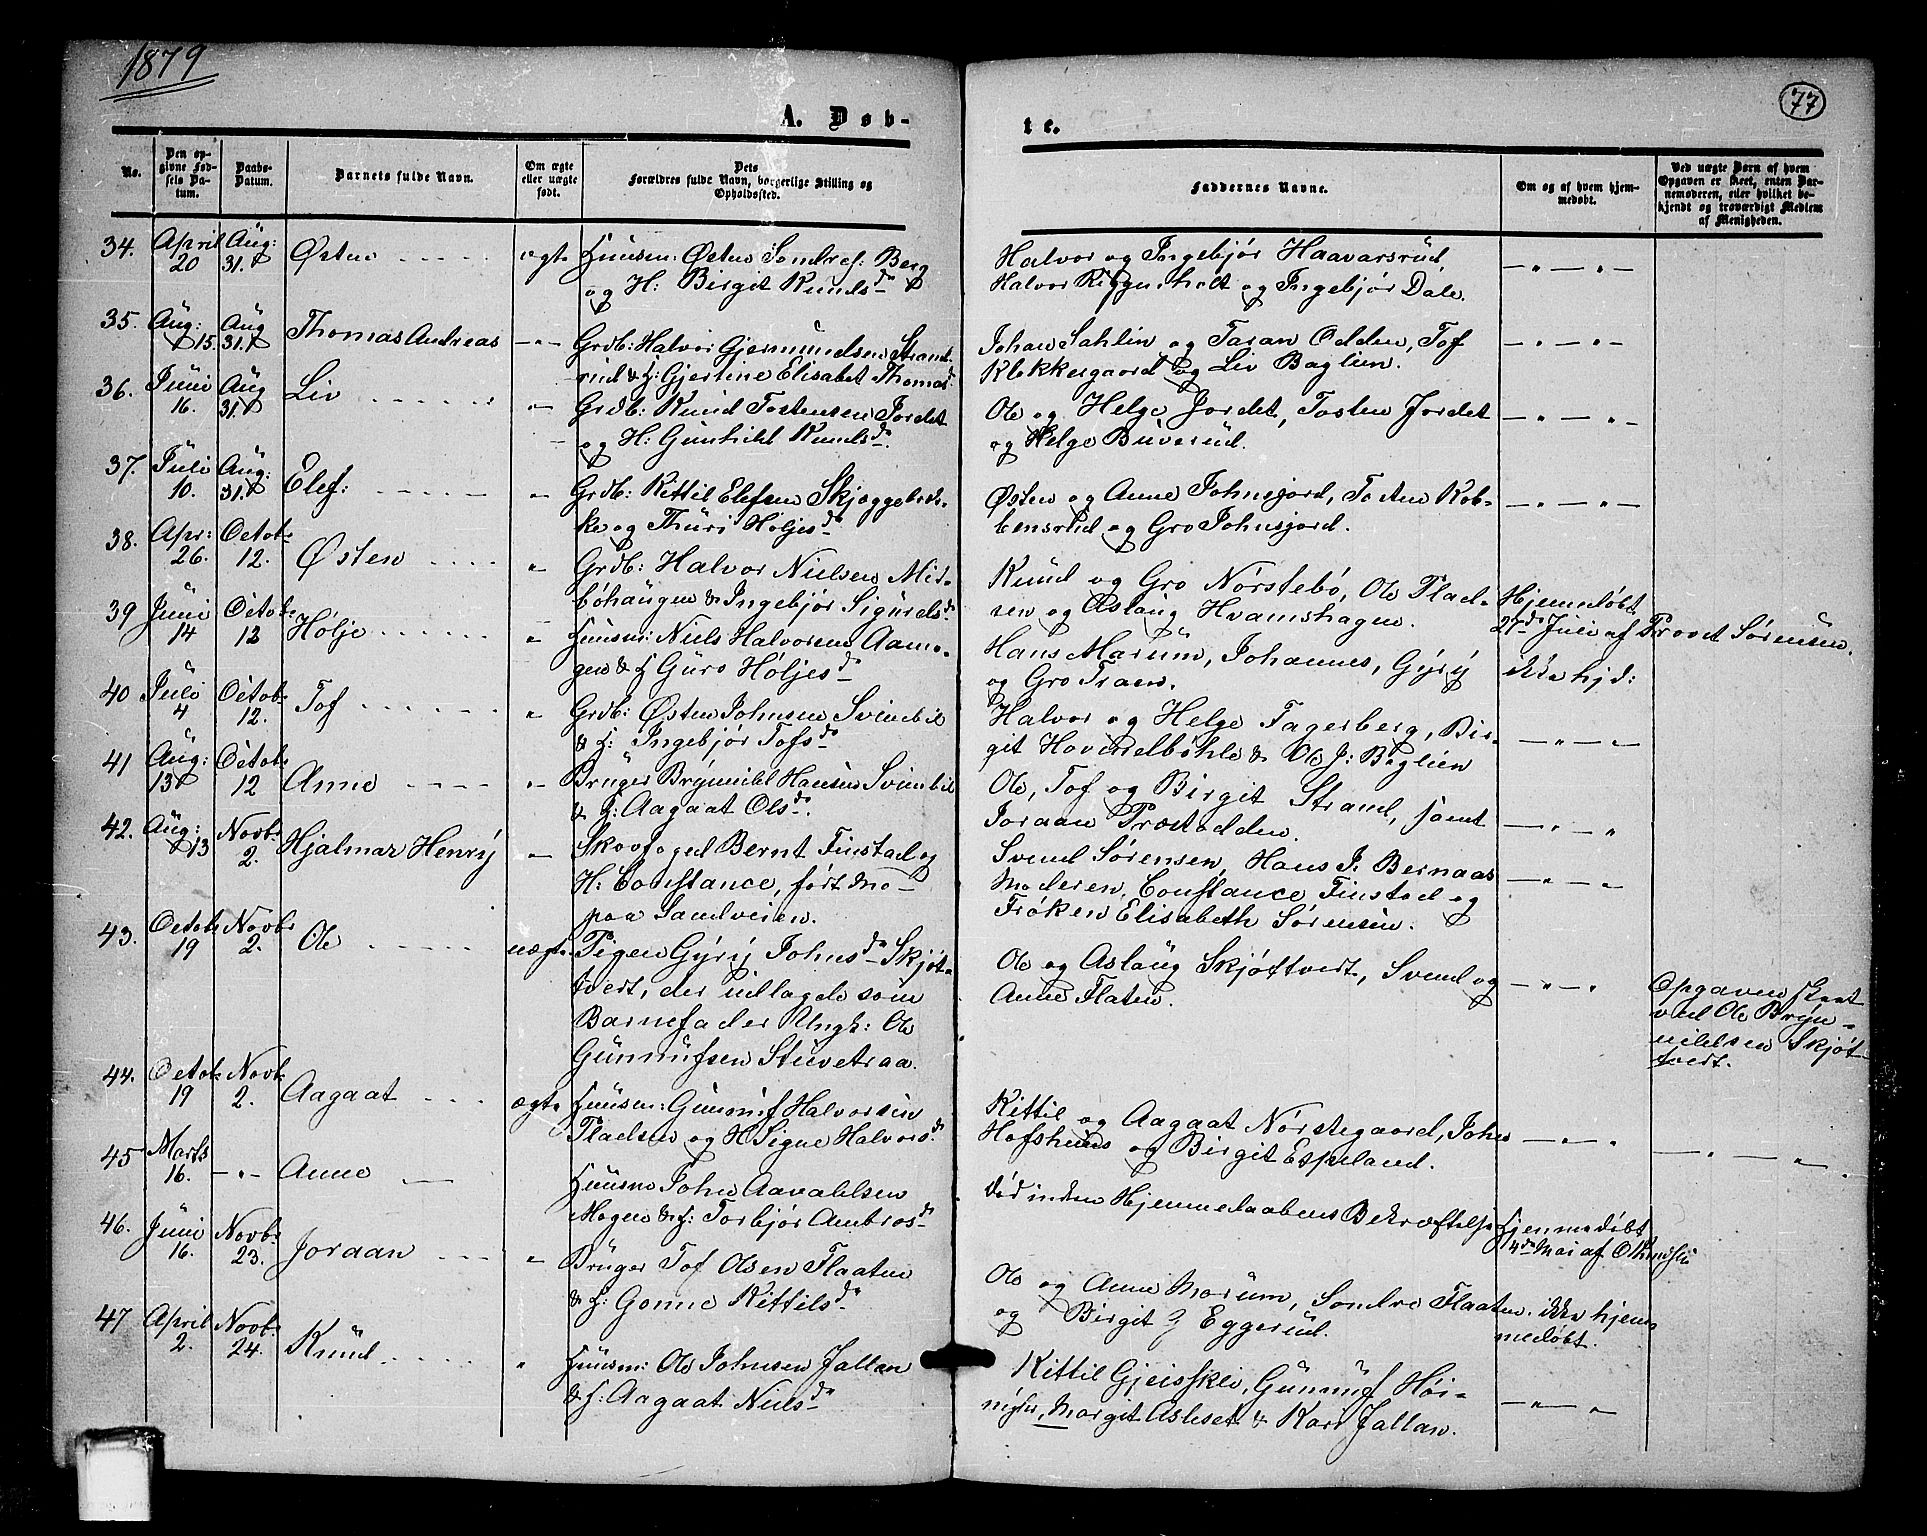 1879
77
A. Døb-
te.
No.
Den op-
givne Fød-
sels Da-
tum.
Daabs-
Datum.
Barnets fulde Navn.
Om ægte
eller uægte
født.
Dets
Forældres fulde Navn, borgerlige Stilling og
Opholdssted.
Faddernes Navne.
Om og af hvem hjem-
medøbt.
Ved uægte Børn af hvem
Opgaven er skeet, enten Bar-
nemoderen, eller hvilket be-
kjendt og troværdigt Medlem
af Menigheden.
34. April 20 Aug: 31. Østen ægte Huusm: Østen Sondres: Berg
og H: Birgit Knudsdr
Halvor og Ingebjør Haavarsrud,
Halvor Ringenholt og Ingebjør Dale.
— " — " —
35. Aug: 15. Aug 31. Thomas Andreas — " — Grdb: Halvor Gjermundsen Strand-
rud & H: Gjertine Elisabet Thomasdr
Johan Sahlin og Taran Odden, Tof
Klekkergaard og Liv Baglien.
— " — " —
36. Juni 16. Aug 31. Liv " Grdb: Knud Tostensen Jordet
og H: Gunhild Knudsdr.
Ole og Helge Jordet, Tosten Jordet
og Helge Buverud.
— " — " —
37. Juli 10. Aug: 31. Elef: " Grdb: Kittil Elefsen Skjæggebek-
ke og Thuri Høljesdr
Østen og Anne Johnsjord, Tosten Kob-
bensrud og Gro Johnsjord.
— " — " —
38. Apr: 26. Octob: 12. Østen " Grdb: Halvor Nielsen Mid-
bøhaugen & Ingebjør Sigurdsdr
Knud og Gro Nørstebø, Ole Plad-
sen og Aslaug Hvamshagen.
Hjemmedøbt
27de Juli af Provst Sørensen.
39 Juni 14 Octob: 12 Hølje " Huusm: Niels Halvorsen Aamo-
gen & H Guro Høljesdr
Hans Marum, Johannes, Gyry
og Gro Traen.
ikke hjd:
40 Juli 4 Octob: 12. Tof " Grdb: Østen Johnsen Svinebil
& H: Ingebjør Tofsdr
Halvor og Helge Fagerberg, Bir-
git Hovendelbøhle & Ole J: Baglien
— " — " —
41 Aug: 13 Octob: 12 Anne " Bruger Brynnild Hansen Svinebil
& H: Aagaat Olsdr.
Ole, Tof og Birgit Strand, samt
Joraan Præstødden.
— " — "
42. Aug: 13 Novb: 2. Hjalmar Henry " Skovfoged Bernt Finstad og
H: Constance, født Mo —
paa Sandveien.
Svend Sørensen, Hans J. Bernaas
Moderen, Constance Finstad og
Frøken Elisabeth Sørensen.
— " — "
43. Octob: 19 Novb: 2. Ole uægte Pigen Gyry Johnsdr Skjøt-
tvedt, der udlagde som
Barnefader Ungk: Ole
Gunnufsen Stuvetraa.
Ole og Aslaug Skjøttvedt, Svend og
Anne Flaten.
— " — "
Opgaven skeet
ved Ole Bryn-
nildsen Skjøt-
tvedt.
44. Octob: 19 Novb: 2. Aagaat ægte Huusm: Gunnuf Halvorsen
Pladsen og H Signe Halvorsdr.
Kittil og Aagaat Nørstegaard, John
Hofshuus og Birgit Espeland.
— " — "
45 Marts 16. — " — Anne Huusm John Aavaldsen
Mogen & H: Torbjør Ambrosdr
død inden Hjemmedaabens Bekræftelse
Hjemmedøbt
4de Mai af
— " — " —
46. Juni 16. Novb: 23. Joraan " Bruger Tof Olsen Flaaten
& H: Gonne Kittilsdr
Ole og Anne Marum, Sondre Flaaten
og Birgit G Eggerud.
ikke hjem-
medøbt.
47 April 2. Novb: 24. Knud " Huusm: Ole Johnsen Jallan
& H: Aagaat Nielsdr
Kittil Gjeisskli, Gunnuf Høi-
Margit Asleset & Kari Jallan.
— " — "